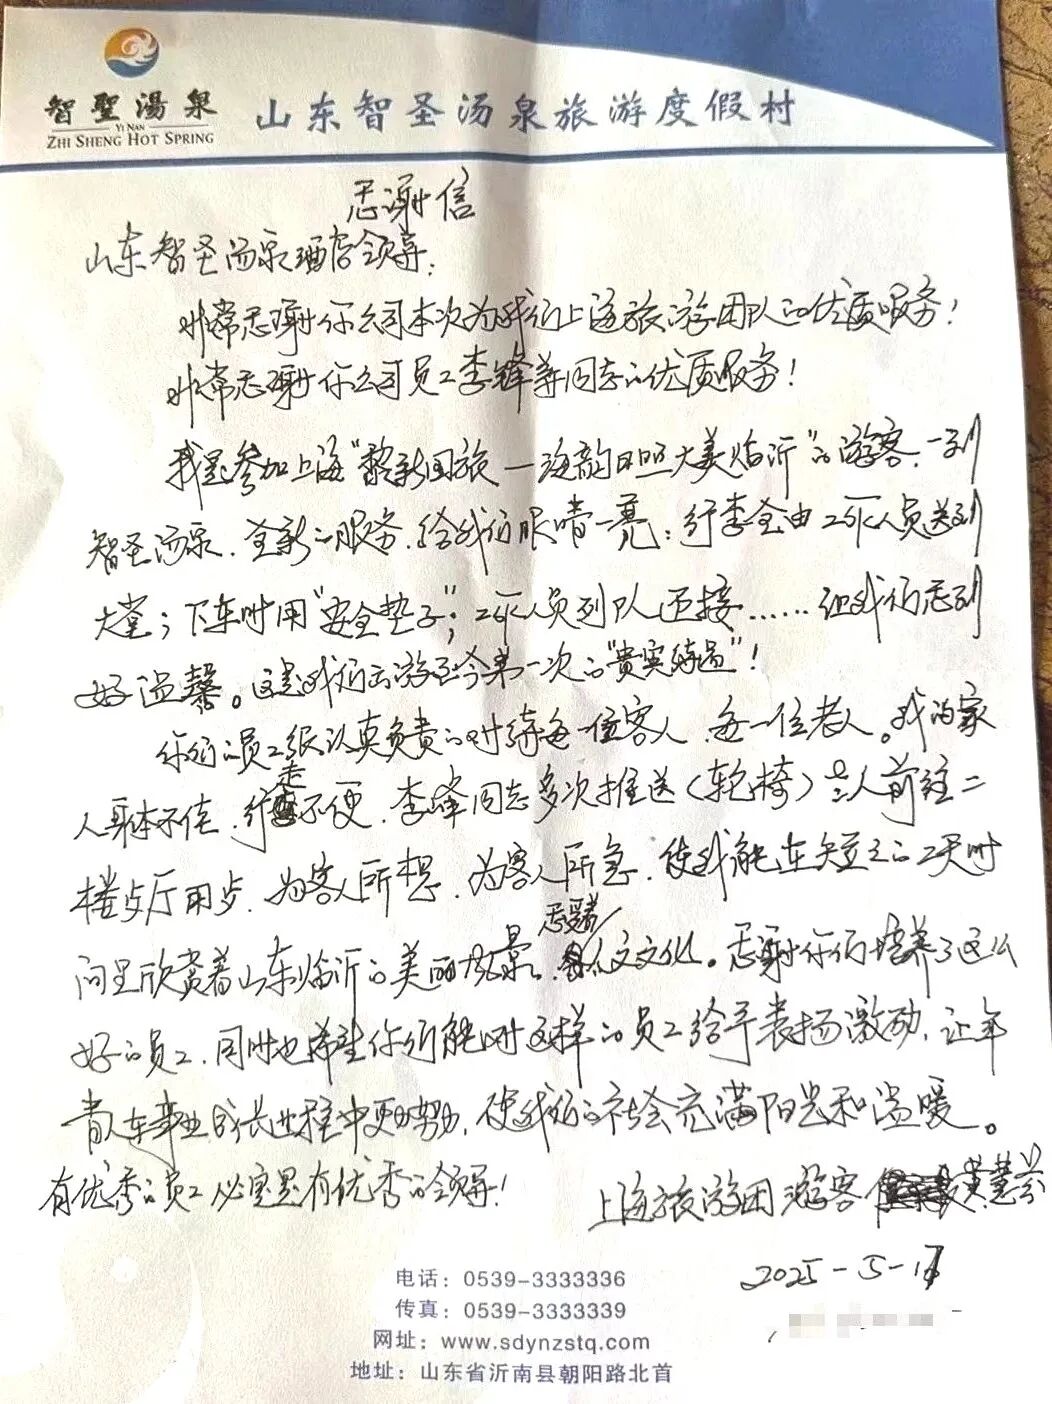 智聖湯泉
YI NAN
ZHI SHENG HOT SPRING
山东智圣汤泉旅游度假村
感谢信
山东智圣汤泉酒店领导：
非常感谢你公司本次为我们上海旅游团队的优质服务！
非常感谢你公司员工李锋等同志的优质服务！
我是参加上海“黎新国旅—海韵日照大美临沂”的游客，一到
智圣汤泉，全新的服务，给我们眼睛一亮：行李全由工作人员送到
大堂；下车时用“安全垫子”；工作人员列队迎接……但我们感到
好温馨。这是我们云游至今第一次的“贵宾待遇”！
你们的员工很认真负责的对待每一位客人，每一位老人。我的家
人身体不佳，行走不便，李峰同志多次推送（轮椅）老人前往二
楼餐厅用餐，为客人所想，为客人所急，使我能在短短的2天时
间里欣赏着山东临沂的美丽风景，感受着人文文化。感谢你们培养了这么
好的员工，同时也希望你们能对这样的员工给予表扬激励，让年
青人在事业成长过程中更加努力，使我们的社会充满阳光和温暖。
有优秀的员工必定是有优秀的领导！
上海旅游团游客 黄慧芬
2025-5-17
电话：0539-3333336
传真：0539-3333339
网址：www.sdynzstq.com
地址：山东省沂南县朝阳路北首